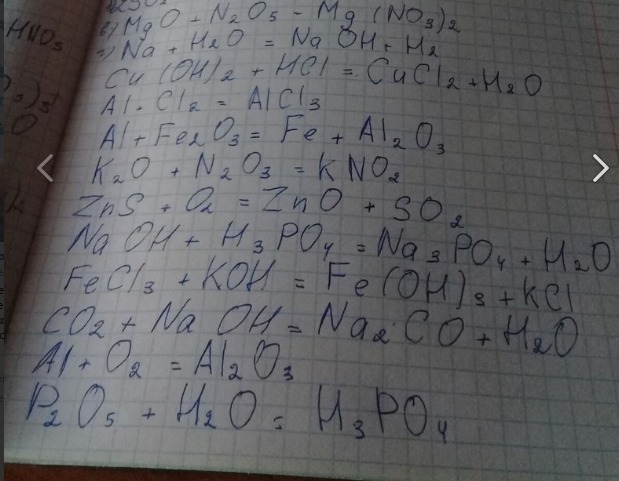 в) MgO + N2O5 - Mg (NO3)2
HNO3
г) Na + H2O = Na OH + H2
Cu (OH)2 + HCl = CuCl2 + H2O
Al · Cl2 = AlCl3
Al + Fe2O3 = Fe + Al2O3
K2O + N2O3 = KNO2
ZnS + O2 = ZnO + SO2
Na OH + H3PO4 = Na3PO4 + H2O
FeCl3 + KOH = Fe (OH)3 + KCl
CO2 + Na OH = Na2 CO + H2O
Al + O2 = Al2O3
P2O5 + H2O = H3PO4